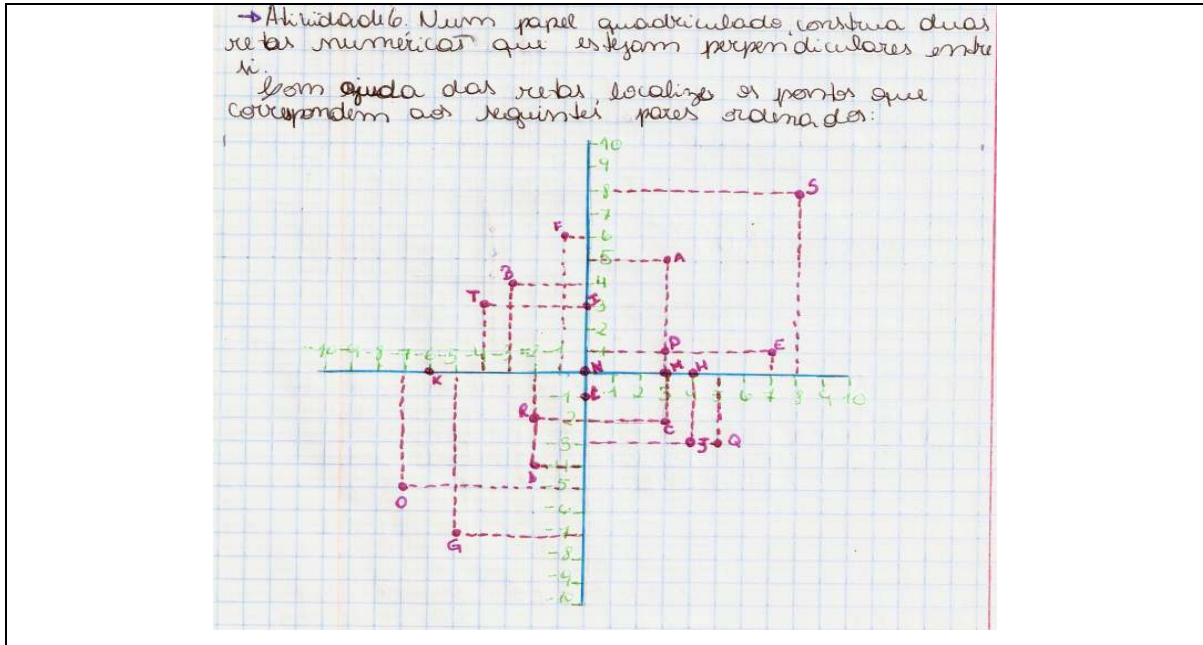 → Atividade 6. Num papel quadriculado, construa duas
retas numéricas que estejam perpendiculares entre
si.
Com ajuda das retas, localize os pontos que
correspondem aos seguintes pares ordenados:
10
9
8 S
7
F 6
5 A
B 4
T I 3
2
P E
-10 -9 -8 -7 -6 -5 -4 -3 -2 -1 1
K N M H
-1 L 1 2 3 4 5 6 7 8 9 10
R -2 C
-3 J Q
D -4
O -5
-6
G -7
-8
-9
-10